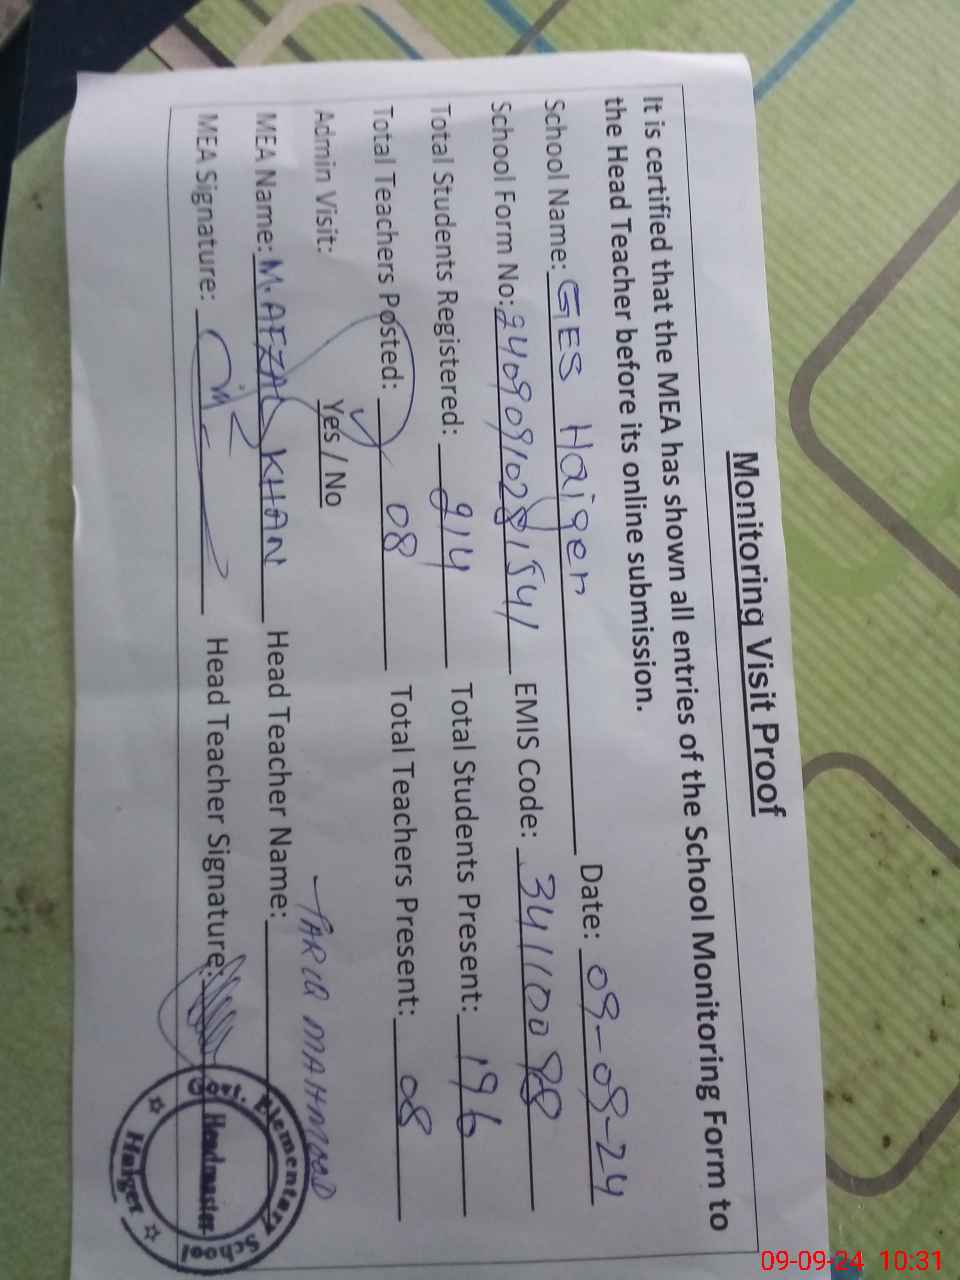 Monitoring Visit Proof
It is certified that the MEA has shown all entries of the School Monitoring Form to
the Head Teacher before its online submission.
School Name: GES Haiger Date: 09-09-24
School Form No: 24090910281541 EMIS Code: 34110098
Total Students Registered: 214 Total Students Present: 196
Total Teachers Posted: 08 Total Teachers Present: 08
Admin Visit: Yes / No
MEA Name: M. AFZAL KHAN Head Teacher Name: TARIQ MAHMOOD
MEA Signature: Head Teacher Signature:
Govt. Elementary School
Headmaster
Haiger
09-09-24 10:31